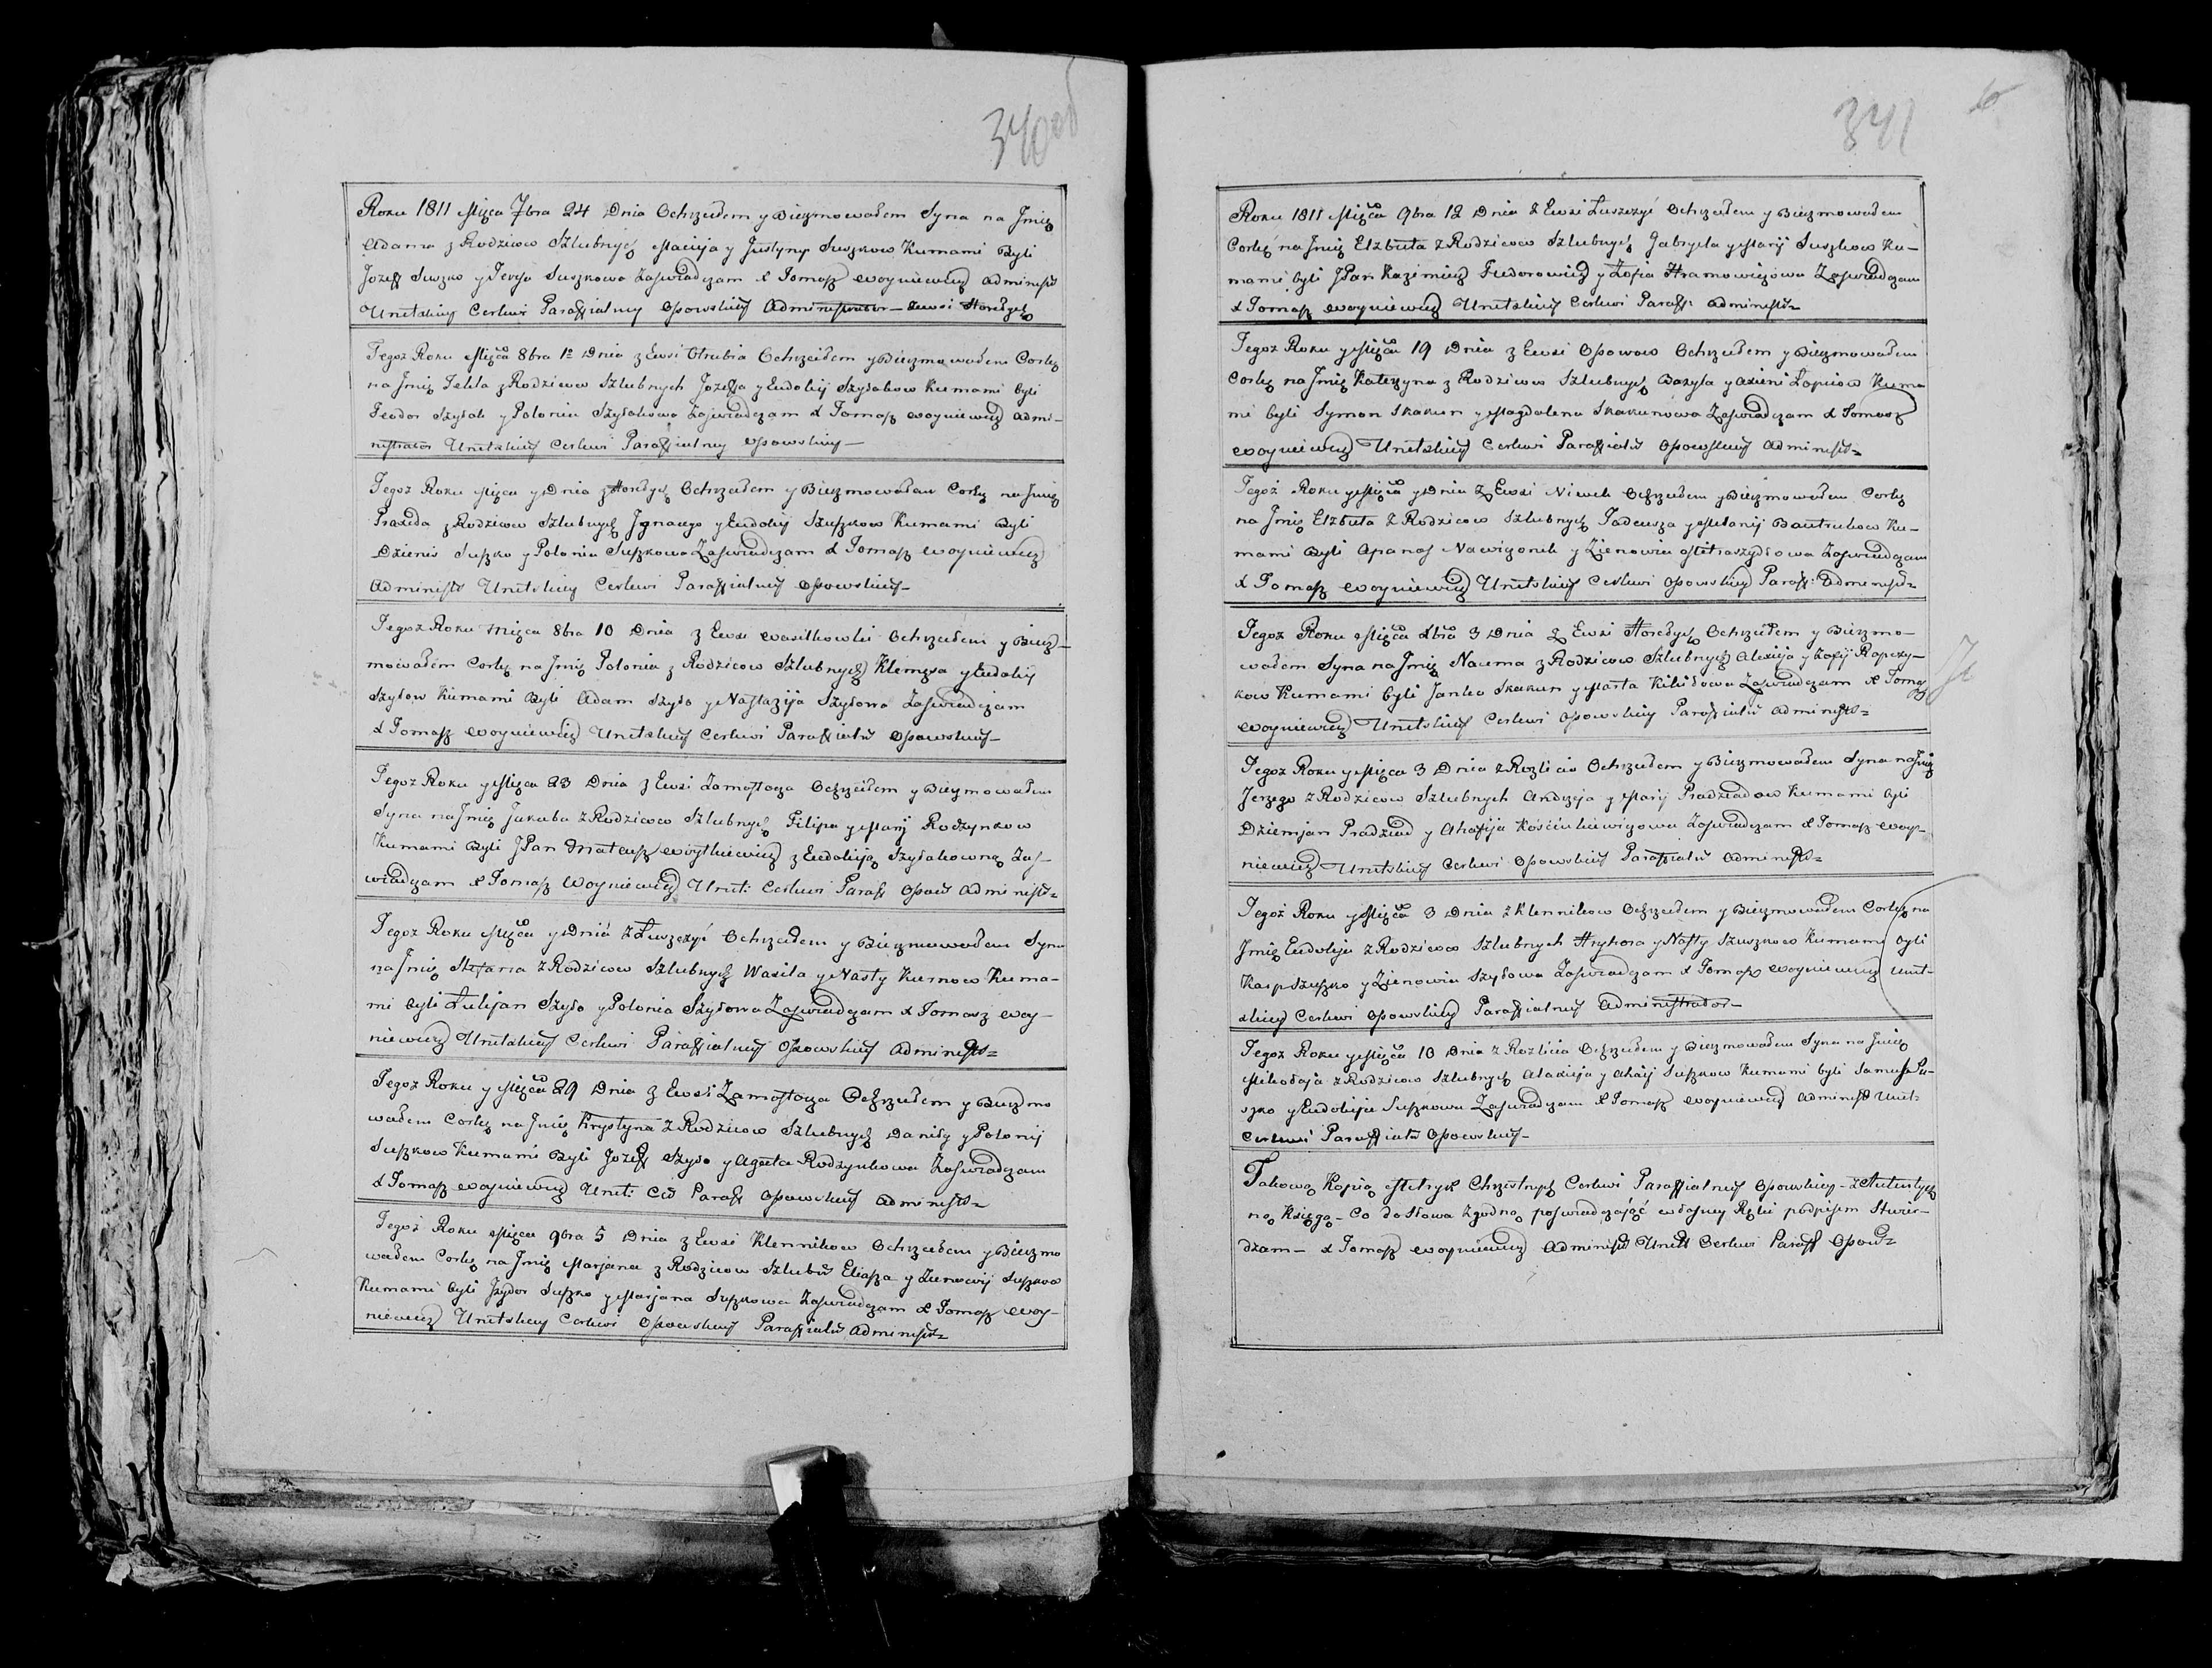 340об
Roku 1811 Mięca 7bra 24 Dnia Ochrzciłem y Bierzmowałem Syna na Jmię
Adama z Rodzicow Szlubnych Macieja y Justyny Suszkow Kumami Byli
Jozeff Suszko y Teresa Suszkowa Zaswiadczam X Tomasz Woyniewicz Administ
Unitskiey Cerkwi Paraffialney Opowskiey Administrator – zewsi Horodych
Tegoż Roku Mięca 8bra 12 Dnia z Ewsi Otrubia Ochrzciłem y Bierzmowałem Corkę
na Jmię Tekla z Rodzicow Szlubnych Jozeffa y Eudokij Szydakow Kumami byli
Teodor Szydak y Polonia Szydakowa Zaswiadczam X Tomasz Woyniewicz Admi-
nistrator Unitskiey Cerkwi Paraffialney Opowskiey –
Tegoż Roku Mięca y Dnia z Horodych Ochrzciłem y Bierzmowałem Corkę na Jmię
Praxeda z Rodzicow Szlubnych Jgnacego y Eudokij Szuszkow Kumami Byli
Dzienis Suszko y Polonia Suszkowa Zaswiadczam X Tomasz Woyniewicz
Administr Unitskiey Cerkwi Paraffialney Opowskiey –
Tegoż Roku Mięca 8bra 10 Dnia z Ewsi Wasilkowki Ochrzciłem y Bierz-
mowałem Corkę na Jmię Polonia z Rodzicow Szlubnych Klemęsa y Eudokij
Szydow Kumami Byli Adam Szydo y Nastazija Szydowa Zaswiadczam
X Tomasz Woyniewicz Unitskiey Cerkwi Paraffialn Opowskiey –
Tegoż Roku y Mięca 23 Dnia z Ewsi Zamostocza Ochrzciłem y Bierzmowałem
Syna na Jmię Jakuba z Rodzicow Szlubnych Filipa y Marij Rodzynkow
Kumami Byli JPan Mateusz Woytkiewicz z Eudokiją Szydakowną Zas-
wiadczam X Tomasz Woyniewicz Unit: Cerkwi Paraff Opow Administr=
Tegoż Roku Mięca y Dnia z Łuszczyc Ochrzciłem y Bierzmowałem Syna
na Jmię Stefana z Rodzicow Szlubnych Wasila y Nasty Kurnow Kuma-
mi byli Łukjan Szydo y Polonia Szydowa Zaswiadczam X Tomasz Woy-
niewicz Unitskiey Cerkwi Paraffialney Opowskiey Administr=
Tegoż Roku y Mięca 29 Dnia z Ewsi Zamostocza Ochrzciłem y Bierzmo
wałem Corkę na Jmię Krystyna z Rodzicow Szlubnych Daniły y Polonij
Suszkow Kumami Byli Jozeff Szydo y Agata Rodzynkowa Zaswiadczam
X Tomasz Woyniewicz Unit: Cer Paraff Opowskiey Administr=
Tegoż Roku Mięca 9bra 5 Dnia z Ewsi Klennikow Ochrzciłem y Bierzmo
wałem Corkę na Jmię Marjana z Rodzicow Szlubn Eliasza y Zienowij Suszkow
Kumami byli Jzydor Suszko y Marjana Suszkowa Zaswiadczam X Tomasz Woy-
niewicz Unitskiey Cerkwi Opowskiey Paraffialn Administr=
341
Roku 1811 Mięca 9bra 12 Dnia z Ewsi Łuszczyc Ochrzciłem y Bierzmowałem
Corkę na Jmię Elzbieta z Rodzicow Szlubnych Gabryela y Marij Suszkow Ku-
mami byli JPan Kazimierz Fiedorowicz y Zofia Hramowiczowa Zaswiadczam
X Tomasz Woyniewicz Unitskiey Cerkwi Paraff: Administr=
Tegoż Roku y Mięca 19 Dnia z Ewsi Opowow Ochrzciłem y Bierzmowałem
Corkę na Jmię Katerzyna z Rodzicow Szlubnych Bazyla y Axieni Łapciow Kuma
mi byli Symon Skakun y Magdalena Skakunowa Zaswiadczam X Tomasz
Woyniewicz Unitskiey Cerkwi Paraffialn Opowskiey Administr=
Tegoż Roku y Mięca y Dnia z Ewsi Niwek Ochrzciłem y Bierzmowałem Corkę
na Jmię Elzbieta z Rodzicow Szlubnych Tadeusza y Melanij Bautrukow Ku-
mami Byli Apanas Nawiczonek y Zienowia Mitraszydowa Zaswiadczam
X Tomasz Woyniewicz Unitskiey Cerkwi Opowskiey Paraff: Administr=
Tegoż Roku Mięca Xbra 3 Dnia z Ewsi Horodych Ochrzciłem y Bierzmo-
wałem Syna na Jmię Nauma z Rodzicow Szlubnych Alexieja y Zofij Rapczy-
kow Kumami byli Janko Skakun y Marta Kiliłowa Zaswiadczam X Tomasz
Woyniewicz Unitskiey Cerkwi Opowskiey Paraffialn Administr=
Tegoż Roku y Mięca 3 Dnia z Rozlicia Ochrzciłem y Bierzmowałem Syna na Jmię
Jerzego z Rodzicow Szlubnych Andrzeja y Marij Pradziadow Kumami byli
Dziemjan Pradziad y Ahafija Kościukiewiczowa Zaswiadczam X Tomasz Woy-
niewicz Unitskiey Cerkwi Opowskiey Paraffialn Administr=
Tegoż Roku y Mięca 3 Dnia z Klennikow Ochrzciłem y Bierzmowałem Corkę na
Jmię Eudokija z Rodzicow Szlubnych Hryhora y Nasty Szuszkow Kumami byli
Karp Szuszko y Zienowia Szydowa Zaswiadczam X Tomasz Woyniewicz Unit-
skiey Cerkwi Opowskiey Paraffialney Administrator –
Tegoż Roku y Mięca 10 Dnia z Rozlicia Ochrzciłem y Bierzmowałem Syna na Jmię
Mikołaja z Rodzicow Szlubnych Alaxieja y Ahaij Suszkow Kumami byli Samuś Su-
szko y Eudokija Suszkowa Zaswiadczam X Tomasz Woyniewicz Administr Unit:
Cerkwi Paraffialn Opowskiey –
Takową Kopią Metryk Chrzestnych Cerkwi Paraffialney Opowskiey – z Autentycz
ną Księgą – Co do Słowa Zgodną poswiadczając własney Ręki podpisem Stwier-
dzam – X Tomasz Woyniewicz Administr Unit Cerkwi Paraff Opow=